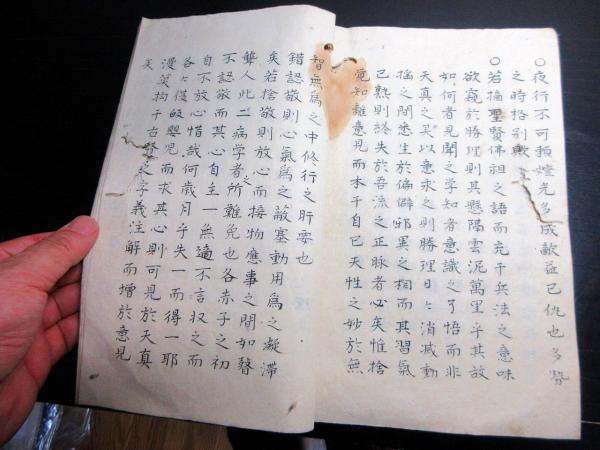 〇夜行不可頼燈先多成敵益已仇也多勢
之時格別歟
〇若掄聖賢佛祖之語而充于兵法之意味
欲窺於勝理則其懸隔雲泥萬里乎其故
如何者見聞之学知者意識之了悟而非
天真之呉以意求之則勝理日〻消减動
揺之間悉生於偏僻邪累之相而其習氣
已熟則終失於吾流之正脉者必矣惟捨
覚知離意見而本于自己天性之妙於無
智無為之中修行之肝要也
錯認敬則心氣為之蔽塞動用為之凝滞
矣若捨敬則放心而接物應事之間如瞽
聾人此二病学者之所難免也各赤子之初
不認敬而其心自主一無適不言収之而
自不放心惜哉何歳月乎失一而得一耶
各〻僅皈嬰児而求其心則可見於天真
漫莫拘于古賢之字義注解而增於意見
矣